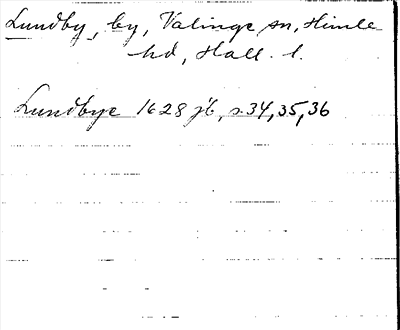 Lundby, by, Valinge sn, Himle
hd, Hall. l.
Lundbye 1628 jb, s. 34, 35, 36